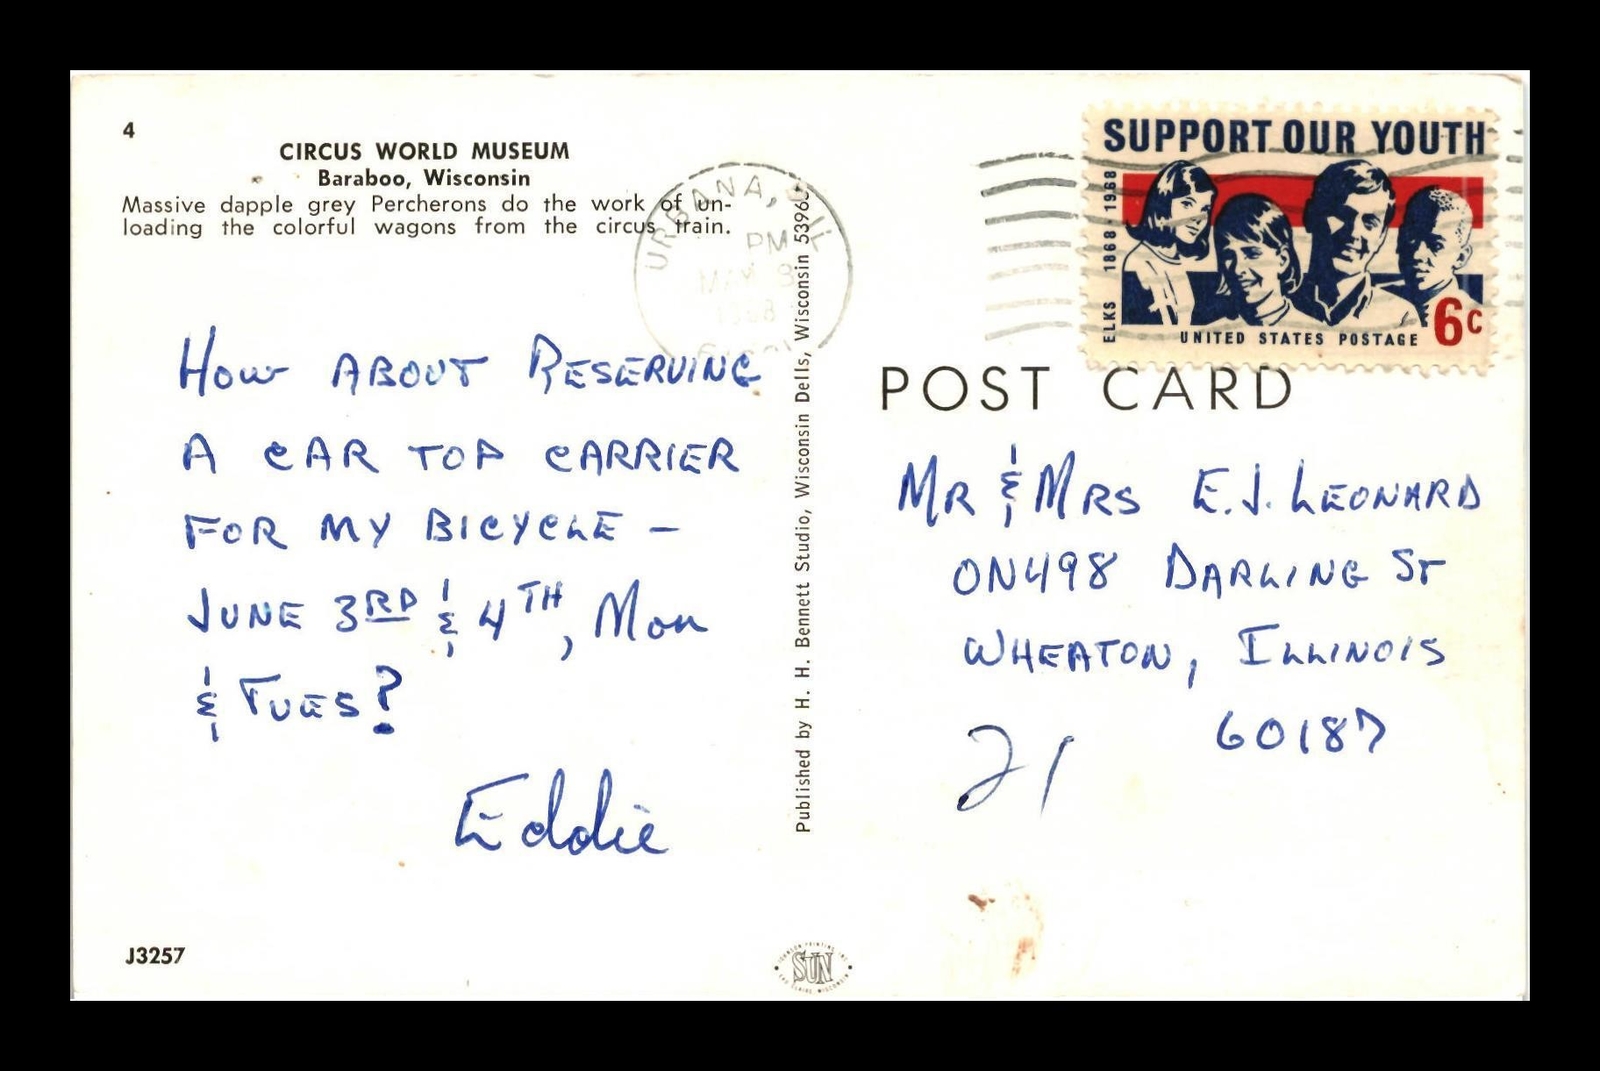 4
CIRCUS WORLD MUSEUM
Baraboo, Wisconsin
Massive dapple grey Percherons do the work of un-
loading the colorful wagons from the circus train.
HOW ABOUT RESERVING
A CAR TOP CARRIER
FOR MY BICYCLE –
JUNE 3RD & 4TH, Mon
& TUES?
Eddie
J3257
Published by H. H. Bennett Studio, Wisconsin Dells, Wisconsin 53965
SUN
URBANA, IL
PM
MAY 8
1968
SUPPORT OUR YOUTH
ELKS 1868-1968
6c
UNITED STATES POSTAGE
POST CARD
MR & MRS E.J. LEONARD
0N498 DARLING ST
WHEATON, ILLINOIS
60187
21